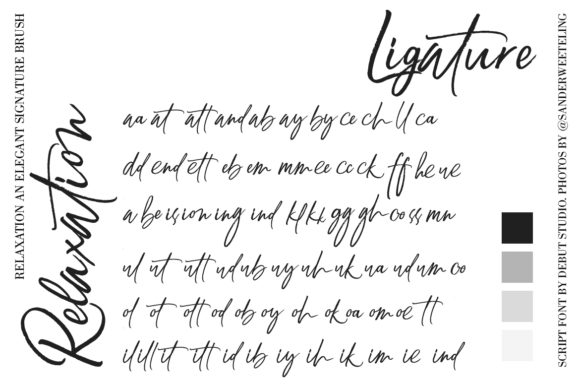 RELAXATION AN ELEGANT SIGNATURE BRUSH
Relaxation
Ligature
aa at att and ab ay by ce ch ll ca
dd end ett eb em mm ee cc ck ff he ue
a be is ion ing ind kl kk gg gh oo ss mn
ul ut utt ud ub uy uh uk ua ud um co
ol ot ott od ob oy oh ok oa om oe tt
il ill it itt id ib iy ih ik im ie ind
SCRIPT FONT BY DEBUT STUDIO. PHOTOS BY @SANDERWEETELING